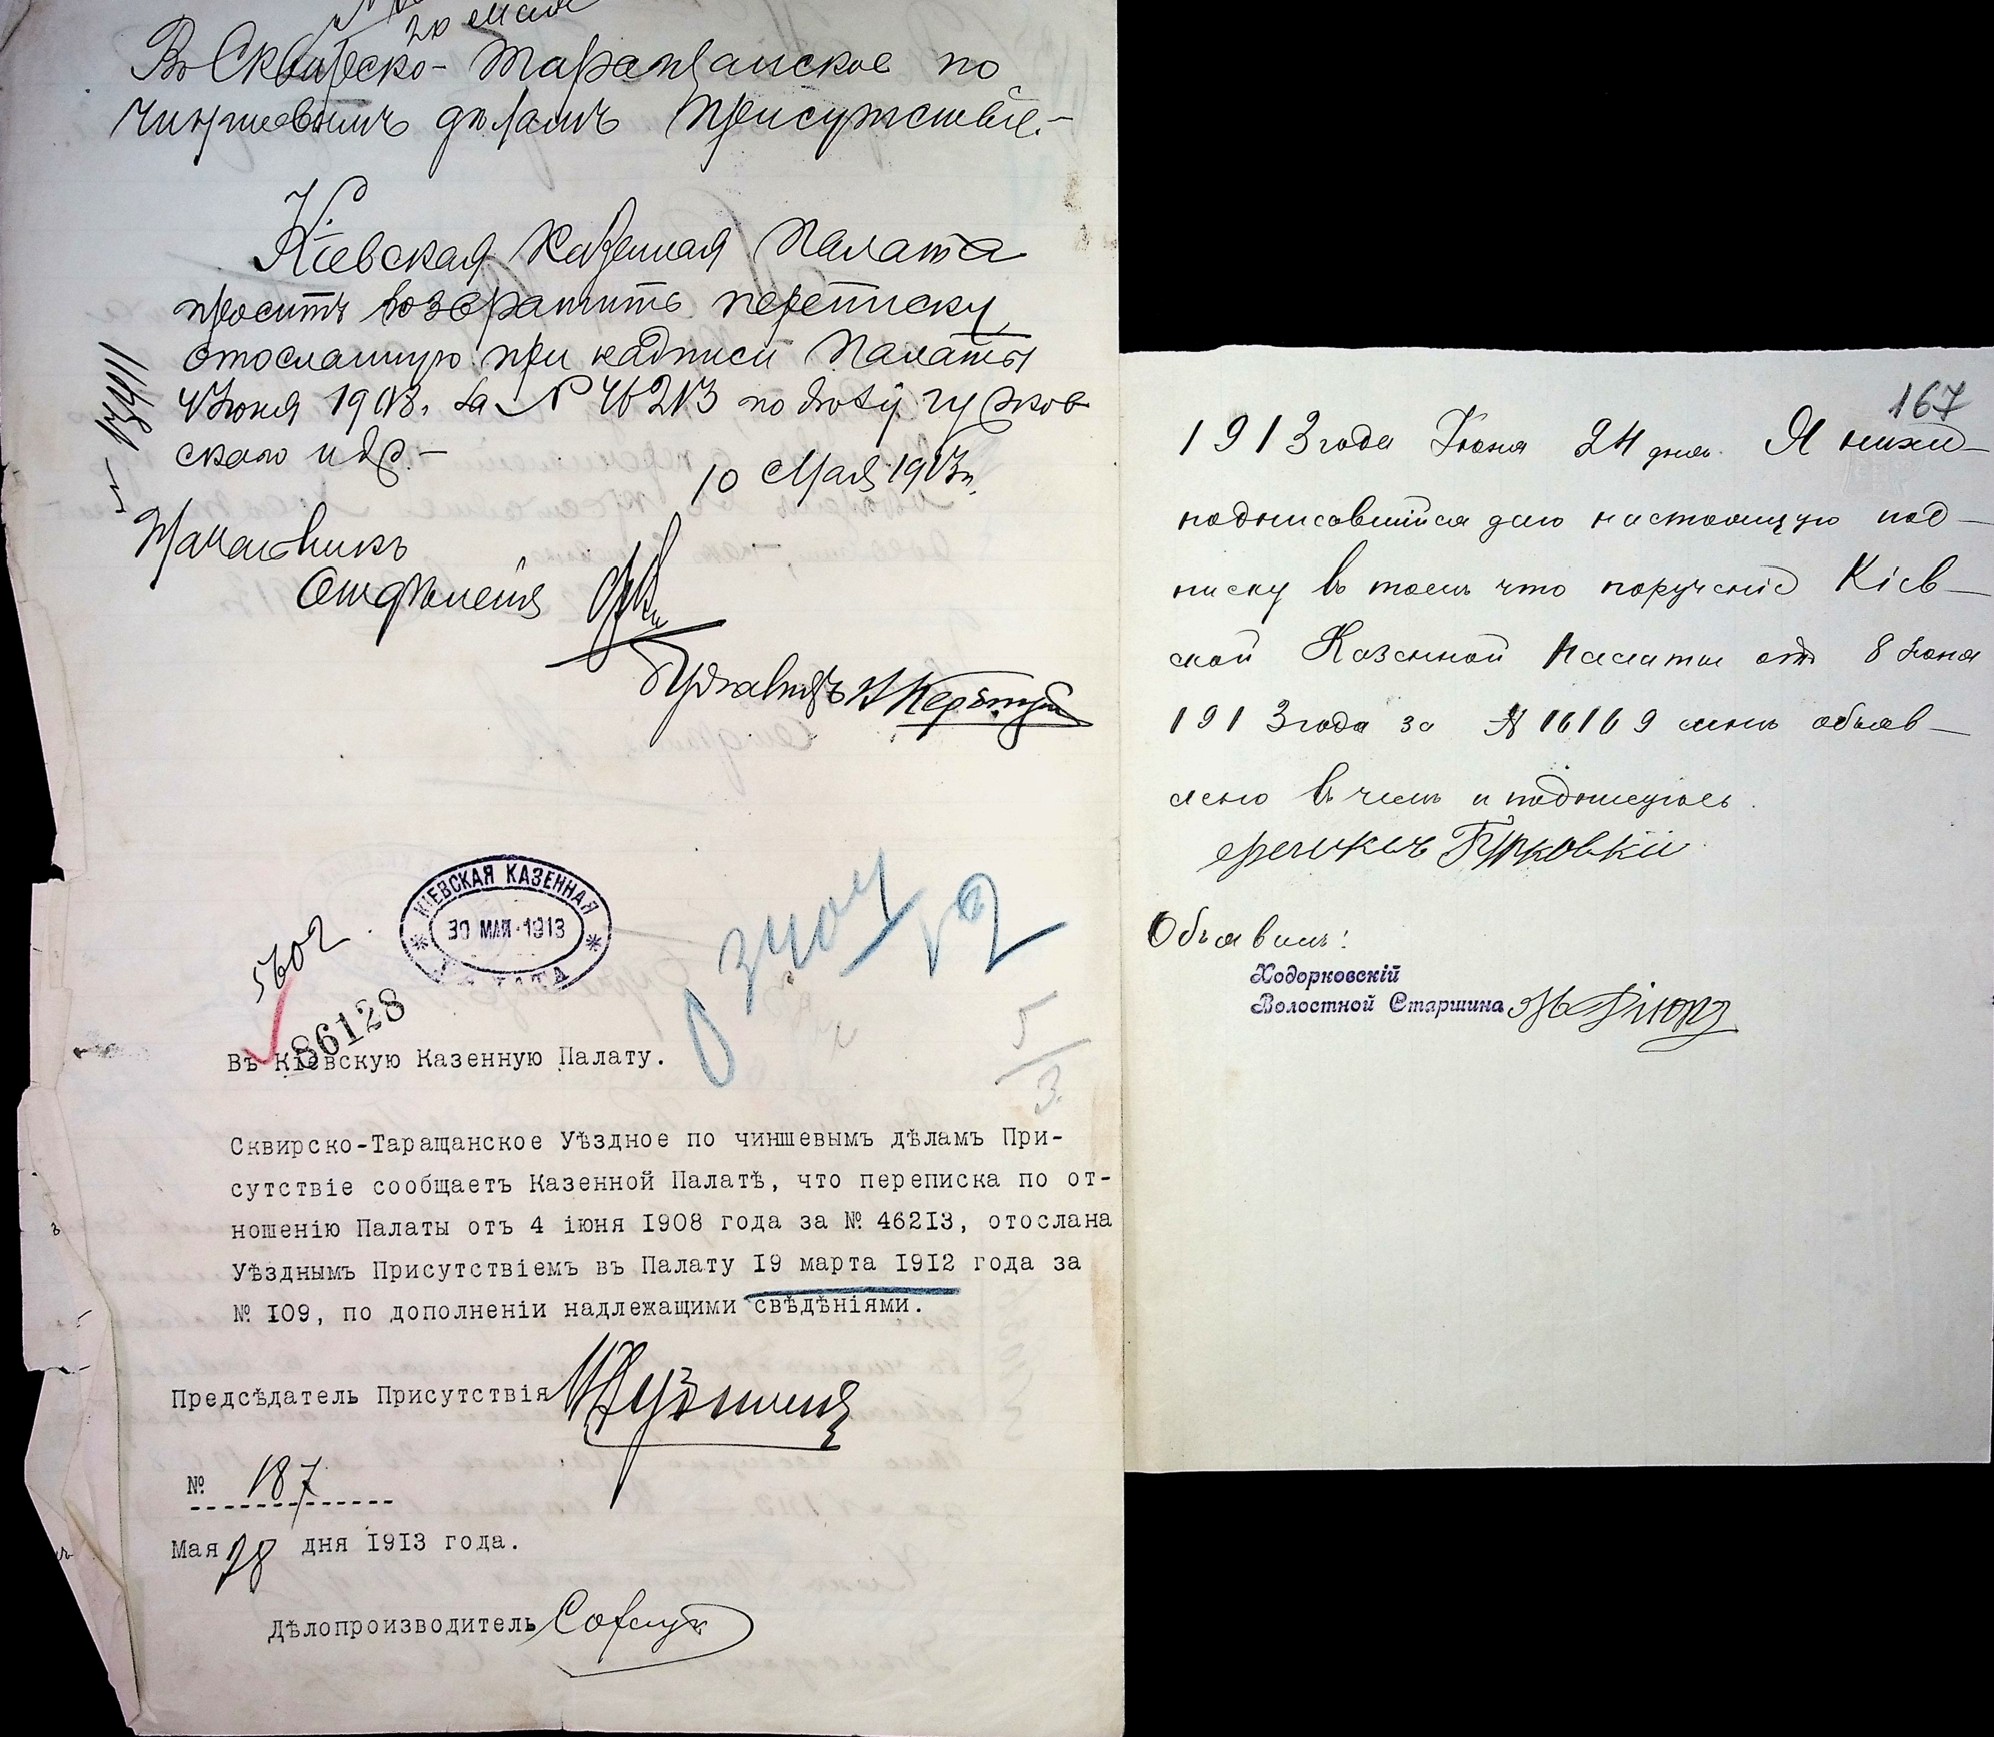 20 мая
Въ Сквирско-Таращанское по
чиншевымъ дѣламъ Присутствіе.-
Кіевская Казенная Палата
проситъ возвратить переписку,
отосланную при надписи Палаты
4 Іюня 1908 г. за № 46213 по дѣлу Гурков
скаго и др.-
10 Мая 1913 г.
№ 13411
Начальникъ
Отдѣленія
5602
КІЕВСКАЯ КАЗЕННАЯ
30 МАЯ 1913
ПАЛАТА
86128
5
3
Въ Кіевскую Казенную Палату.
Сквирско-Таращанское Уѣздное по чиншевымъ дѣламъ При-
сутствіе сообщаетъ Казенной Палатѣ, что переписка по от-
ношенію Палаты отъ 4 іюня 1908 года за № 46213, отослана
Уѣзднымъ Присутствіемъ въ Палату 19 марта 1912 года за
№ 109, по дополненіи надлежащими свѣдѣніями.
Предсѣдатель Присутствія
№ 187
Мая 28 дня 1913 года.
Дѣлопроизводитель
167
1913 года Іюня 24 дня. Я ниже-
подписавшійся даю настоящую под-
писку въ томъ что порученіе Кіев-
ской Казенной Палаты отъ 8 Іюня
1913 года за № 16169 мнѣ объяв-
лено въ чемъ и подпишуюсь.
Объявилъ:
Ходорковскій
Волостной Старшина